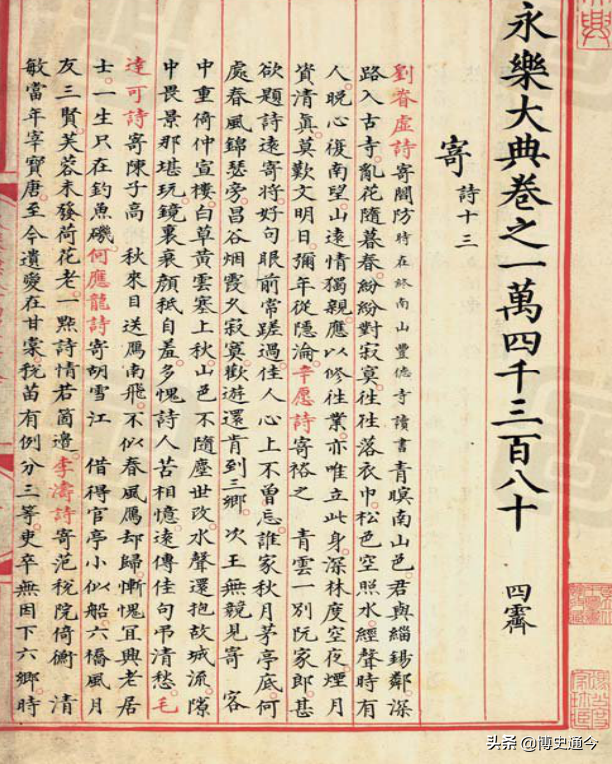 永樂大典卷之一萬四千三百八十 四霽
寄 詩十三
劉眘虛詩寄閻防時在終南山豐德寺讀書青暝南山色君與緇錫鄰深
路入古寺亂花隨暮春紛紛對寂寞往往落衣巾松色空照水經聲時有
人晚心復南望山遠情獨親應以修往業亦唯立此身深林度空夜煙月
資清真莫歎文明日彌年從隱淪辛愿詩寄裕之 青雲一別阮家郎甚
欲題詩遠寄將好句眼前常蹉過佳人心上不曾忘誰家秋月茅亭底何
處春風錦瑟旁昌谷烟霞久寂寞歡遊還肯到三鄉 次王無競見寄 客
中重倚仲宣樓白草黃雲塞上秋山色不隨塵世改水聲還抱故城流隙
中畏景那堪玩鏡裏衰顔秖自羞多愧詩人苦相憶遠傳佳句弔清愁毛
達可詩寄陳子高 秋來目送鴈南飛不似春風鴈却歸慚愧宜興老居
士一生只在釣魚磯何應龍詩寄胡雪江 借得官亭小似船六橋風月
友三賢芙蓉未發荷花老一點詩情若箇邉李濤詩寄范稅院倚衡 清
敏當年宰寶唐至今遺愛在甘棠稅苗有例分三等吏卒無因下六鄉時
头条 @博史通今